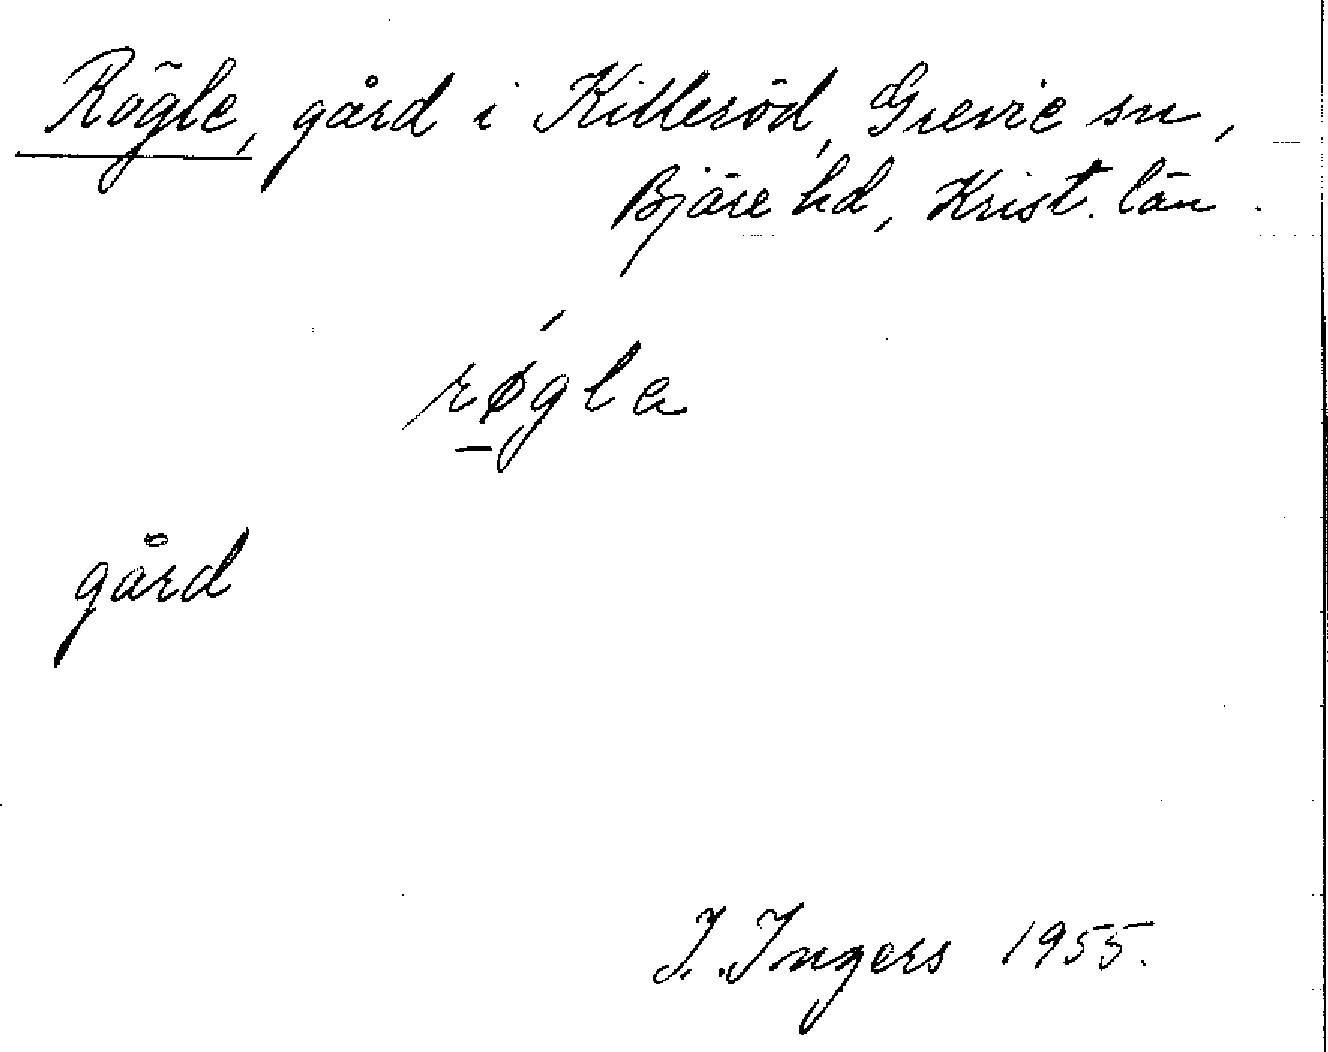 Rögle, gård i Killeröd, Grevie sn,
Bjäre hd, Krist. län.
rǿgla
gård
I. Ingers 1955.